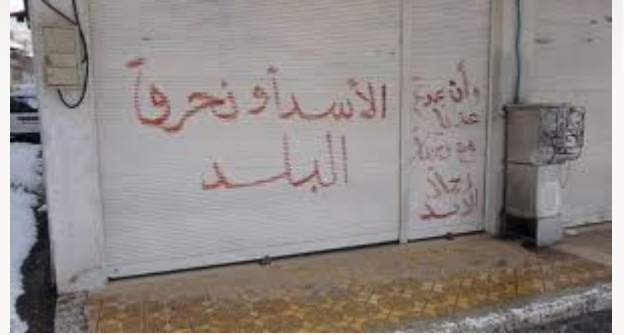 الأسد أو نحرق
البلد
وأن عدتم
عدنا
رجال
الأسد